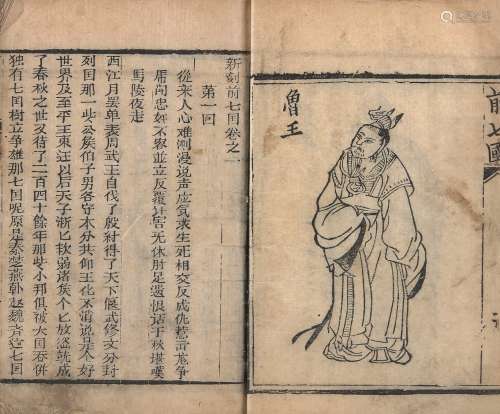 前七國
魯王
新刻前七国卷之一
第一回
從来人心难测漫说声应気求生死相交反成仇惹
不容並立反覆计害无休肘足遺恨
馬陵夜走
西江月罢单表周武王自伐了殷紂得了天下偃武修文分封
列国那一些公侯伯子男各守本分共仰王化不消说是个好
世界及至平王東迁以后天子渐匕衰弱诸侯个匕放恣就成
了春秋之世又待了二百四十餘年那些小邦俱被大国吞併
独有七国樹立争雄那七国呢原是秦楚燕韩赵魏齐这七国